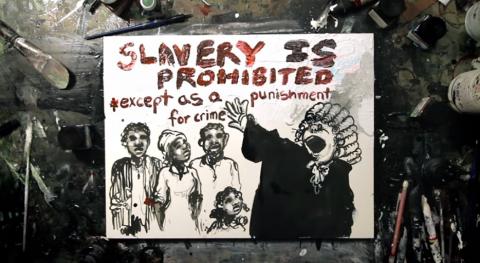 SLAVERY IS
PROHIBITED
*except as a punishment
for crime